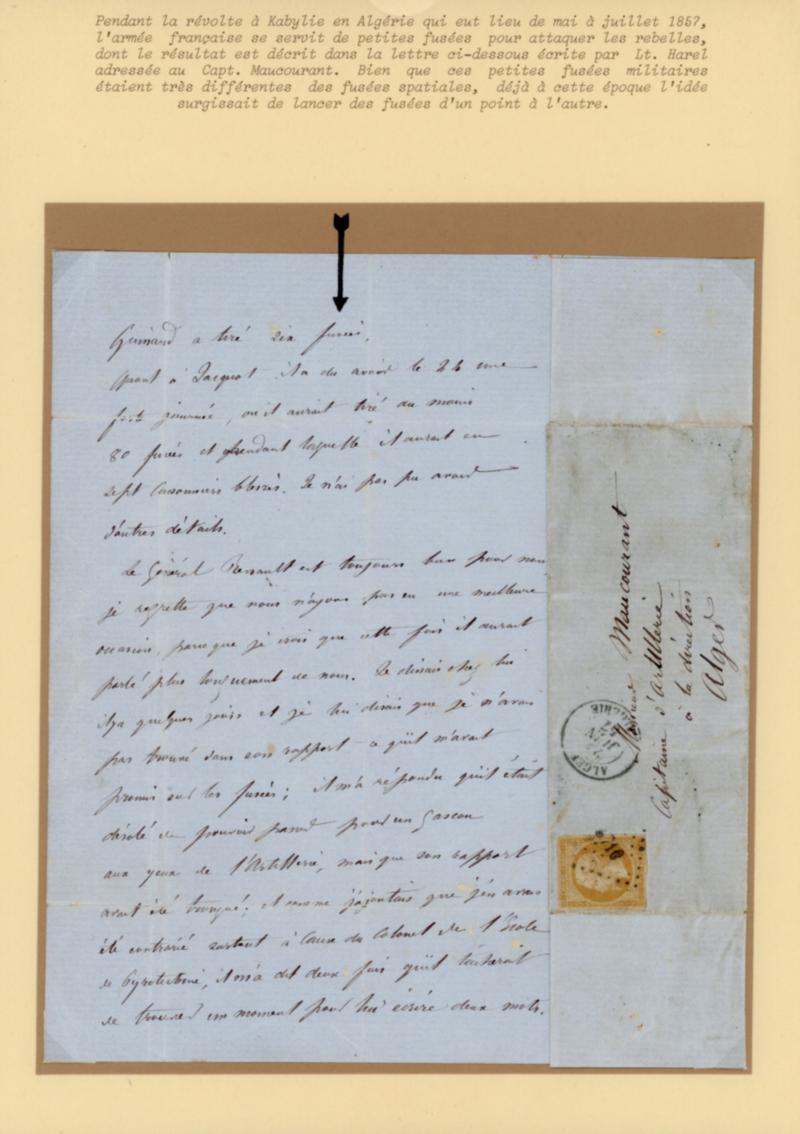 Pendant la révolte à Kabylie en Algérie qui eut lieu de mai à juillet 1857,
l'armée française se servit de petites fusées pour attaquer les rebelles,
dont le résultat est décrit dans la lettre ci-dessous écrite par Lt. Harel
adressée au Capt. Maucourant. Bien que ces petites fusées militaires
étaient très différentes des fusées spatiales, déjà à cette époque l'idée
surgissait de lancer des fusées d'un point à l'autre.
a tiré six fusées.
Quant à Jacquot il a du avoir le 24 une
forte journée, où il aurait tiré au moins
80 fusées et pendant laquelle il aurait eu
sept canonniers blessés. Je n'ai pas pu avoir
d'autres détails.
Le Général Renault est toujours bien pour nous
je regrette que nous n'ayons pas eu une meilleure
occasion, parce que je crois que cette fois il aurait
parlé plus longuement de nous. Je dinais chez lui
il y a quelques jours et je lui disais que je n'avais
pas trouvé dans son rapport ce qu'il m'avait
promis sur les fusées; il m'a répondu qu'il était
désolé de pouvoir passer pour un Gascon
aux yeux de l'Artillerie, mais que son rapport
avait été tronqué; et comme j'ajoutais que j'en avais
été contrarié surtout à cause du Colonel de l'École
de Pyrotechnie, il m'a dit deux fois qu'il tâcherait
de trouver un moment pour lui écrire deux mots.
Monsieur Maucourant
Capitaine d'artillerie
à la direction
Alger
ALGER
JUIN
ALGÉRIE